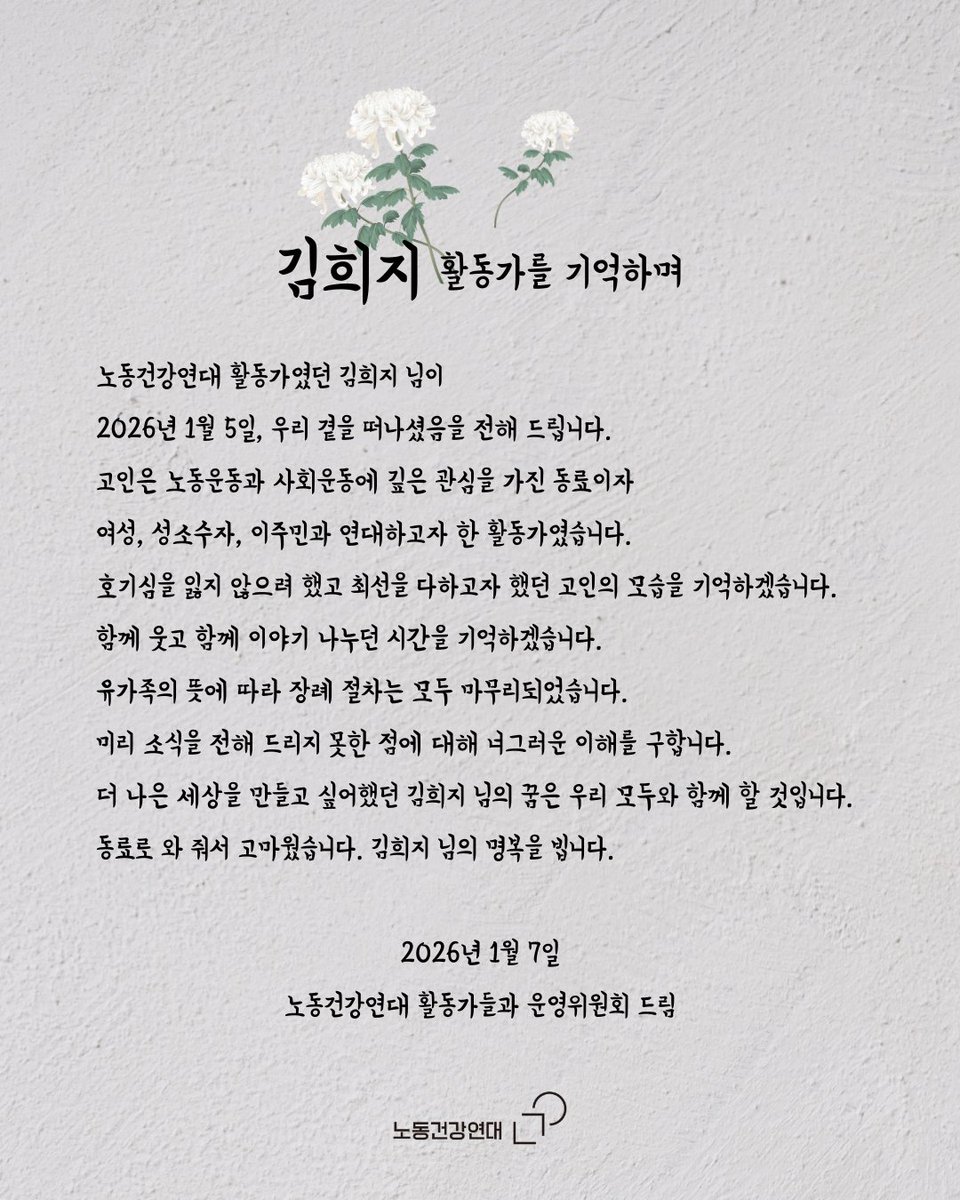 김희지 활동가를 기억하며
노동건강연대 활동가였던 김희지 님이
2026년 1월 5일, 우리 곁을 떠나셨음을 전해 드립니다.
고인은 노동운동과 사회운동에 깊은 관심을 가진 동료이자
여성, 성소수자, 이주민과 연대하고자 한 활동가였습니다.
호기심을 잃지 않으려 했고 최선을 다하고자 했던 고인의 모습을 기억하겠습니다.
함께 웃고 함께 이야기 나누던 시간을 기억하겠습니다.
유가족의 뜻에 따라 장례 절차는 모두 마무리되었습니다.
미리 소식을 전해 드리지 못한 점에 대해 너그러운 이해를 구합니다.
더 나은 세상을 만들고 싶어했던 김희지 님의 꿈은 우리 모두와 함께 할 것입니다.
동료로 와 줘서 고마웠습니다. 김희지 님의 명복을 빕니다.
2026년 1월 7일
노동건강연대 활동가들과 운영위원회 드림
노동건강연대